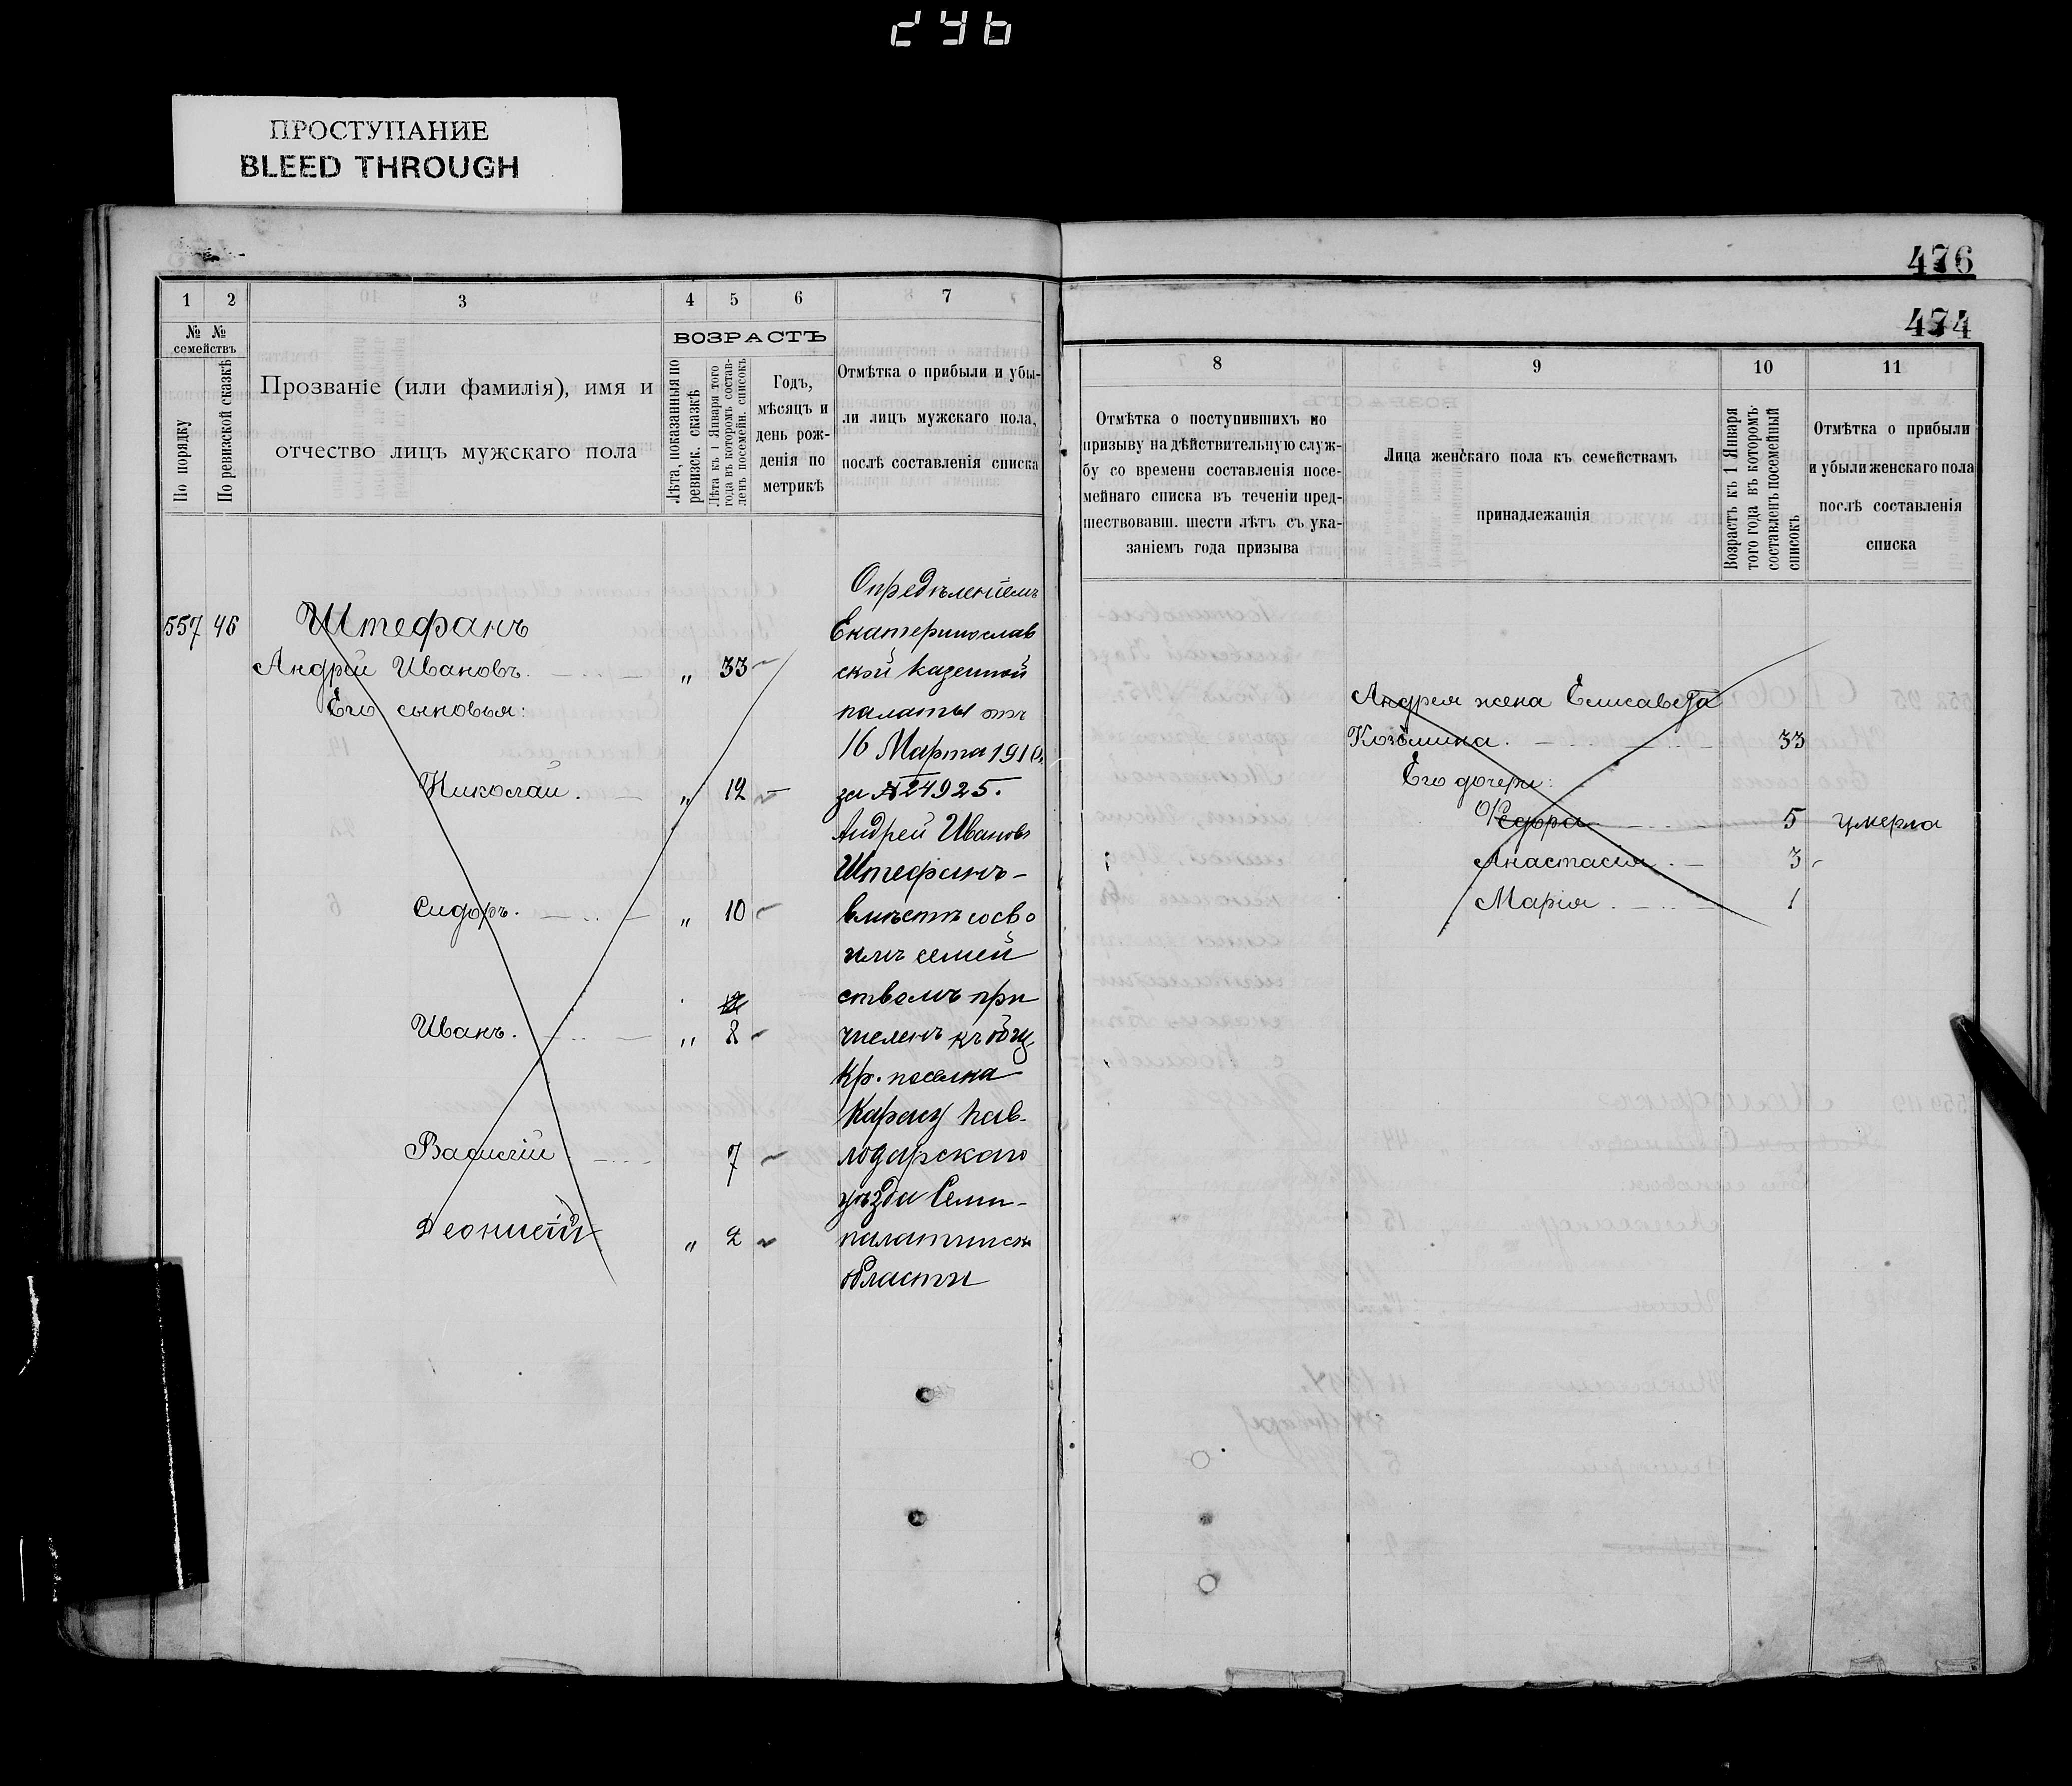 246
ПРОСТУПАНИЕ
BLEED THROUGH
476
474
1 2 3 4 5 6 7
№ № семействъ
По порядку
По ревизской сказкѣ
Прозваніе (или фамилія), имя и
отчество лицъ мужскаго пола
ВОЗРАСТЪ
Лѣта, показанныя по
ревизск. сказкѣ
Лѣта къ 1 Января того
года въ которомъ состав-
ленъ посемейн. списокъ
Годъ,
мѣсяцъ и
день рож-
денія по
метрикѣ
Отмѣтка о прибыли и убы-
ли лицъ мужскаго пола,
послѣ составленія списка
557 46 Штефанъ
Андрей Ивановъ. „ 33
Его сыновья:
Николай. „ 12
Сидоръ. „ 10
Иванъ. „ 8
Василій 7
Леонтій „ 2
Опредѣленіемъ
Екатеринослав
ской Казенной
палаты отъ
16 Марта 1910.
за № 4925.
Андрей Ивановъ
Штефанъ-
вмѣстѣ со сво
имъ семей
ствомъ при
численъ къ общ
кр. поселка
Карасу Пав-
лодарскаго
уѣзда Семи-
палатинск
области
8 9 10 11
Отмѣтка о поступившихъ по
призыву на дѣйствительную служ-
бу со времени составленія посе-
мейнаго списка въ теченіи пред-
шествовавш. шести лѣтъ съ ука-
заніемъ года призыва
Лица женскаго пола къ семействамъ
принадлежащія
Возрастъ къ 1 Января
того года въ которомъ
составленъ посемейный
списокъ
Отмѣтка о прибыли
и убыли женскаго пола
послѣ составленія
списка
Андрея жена Елисавета
Козьмина. 33
Его дочери:
Федора 5 умерла
Анастасія. 3
Марія. 1